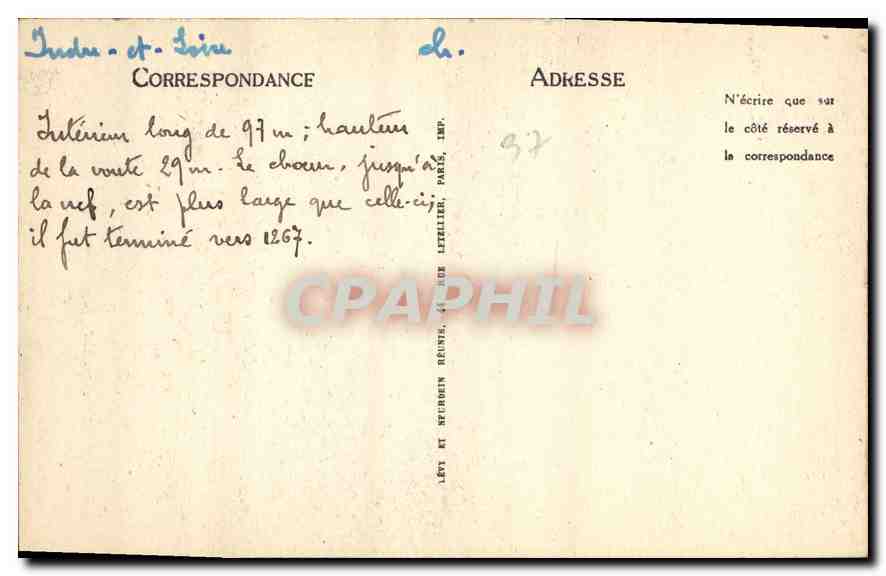 Indre-et-Loire
ch.
CORRESPONDANCE
ADRESSE
N'écrire que sur
le côté réservé à
la correspondance
Intérieur long de 97 m ; hauteur
de la voute 29 m. Le chœur, jusqu'à
la nef, est plus large que celle-ci,
il fut terminé vers 1267.
97
LÉVY ET NEURDEIN RÉUNIS, 44 RUE LETELLIER, PARIS, IMP.
CPAPHIL